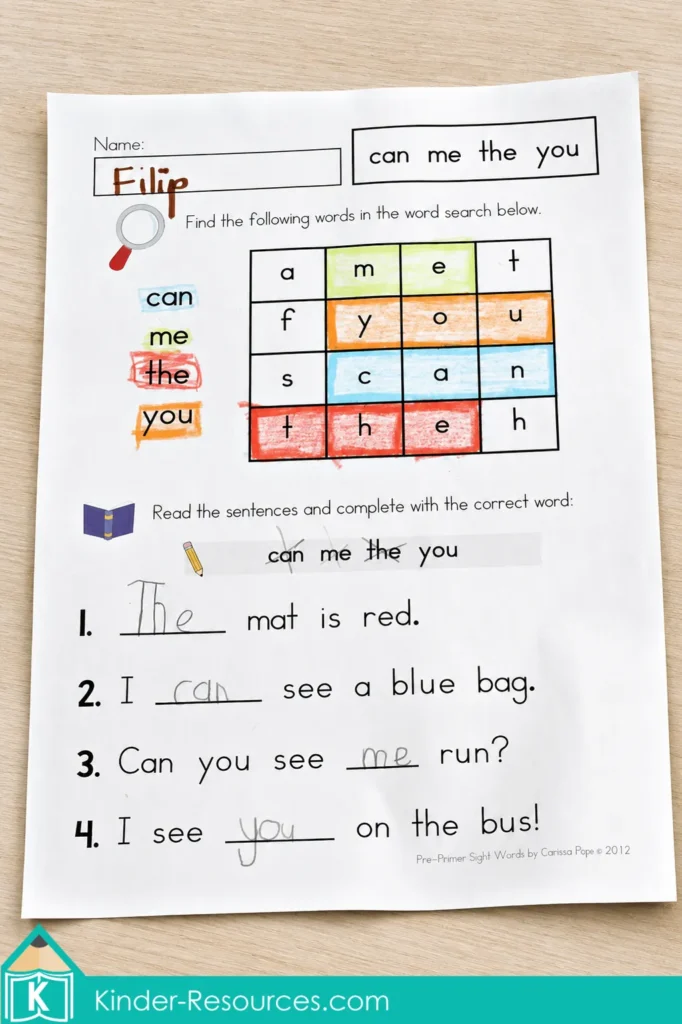 Name:
Filip
can me the you
Find the following words in the word search below.
can
me
the
you
a m e t
f y o u
s c a n
t h e h
Read the sentences and complete with the correct word:
can me the you
1. The mat is red.
2. I can see a blue bag.
3. Can you see me run?
4. I see you on the bus!
Pre-Primer Sight Words by Carissa Pope © 2012
K
Kinder-Resources.com